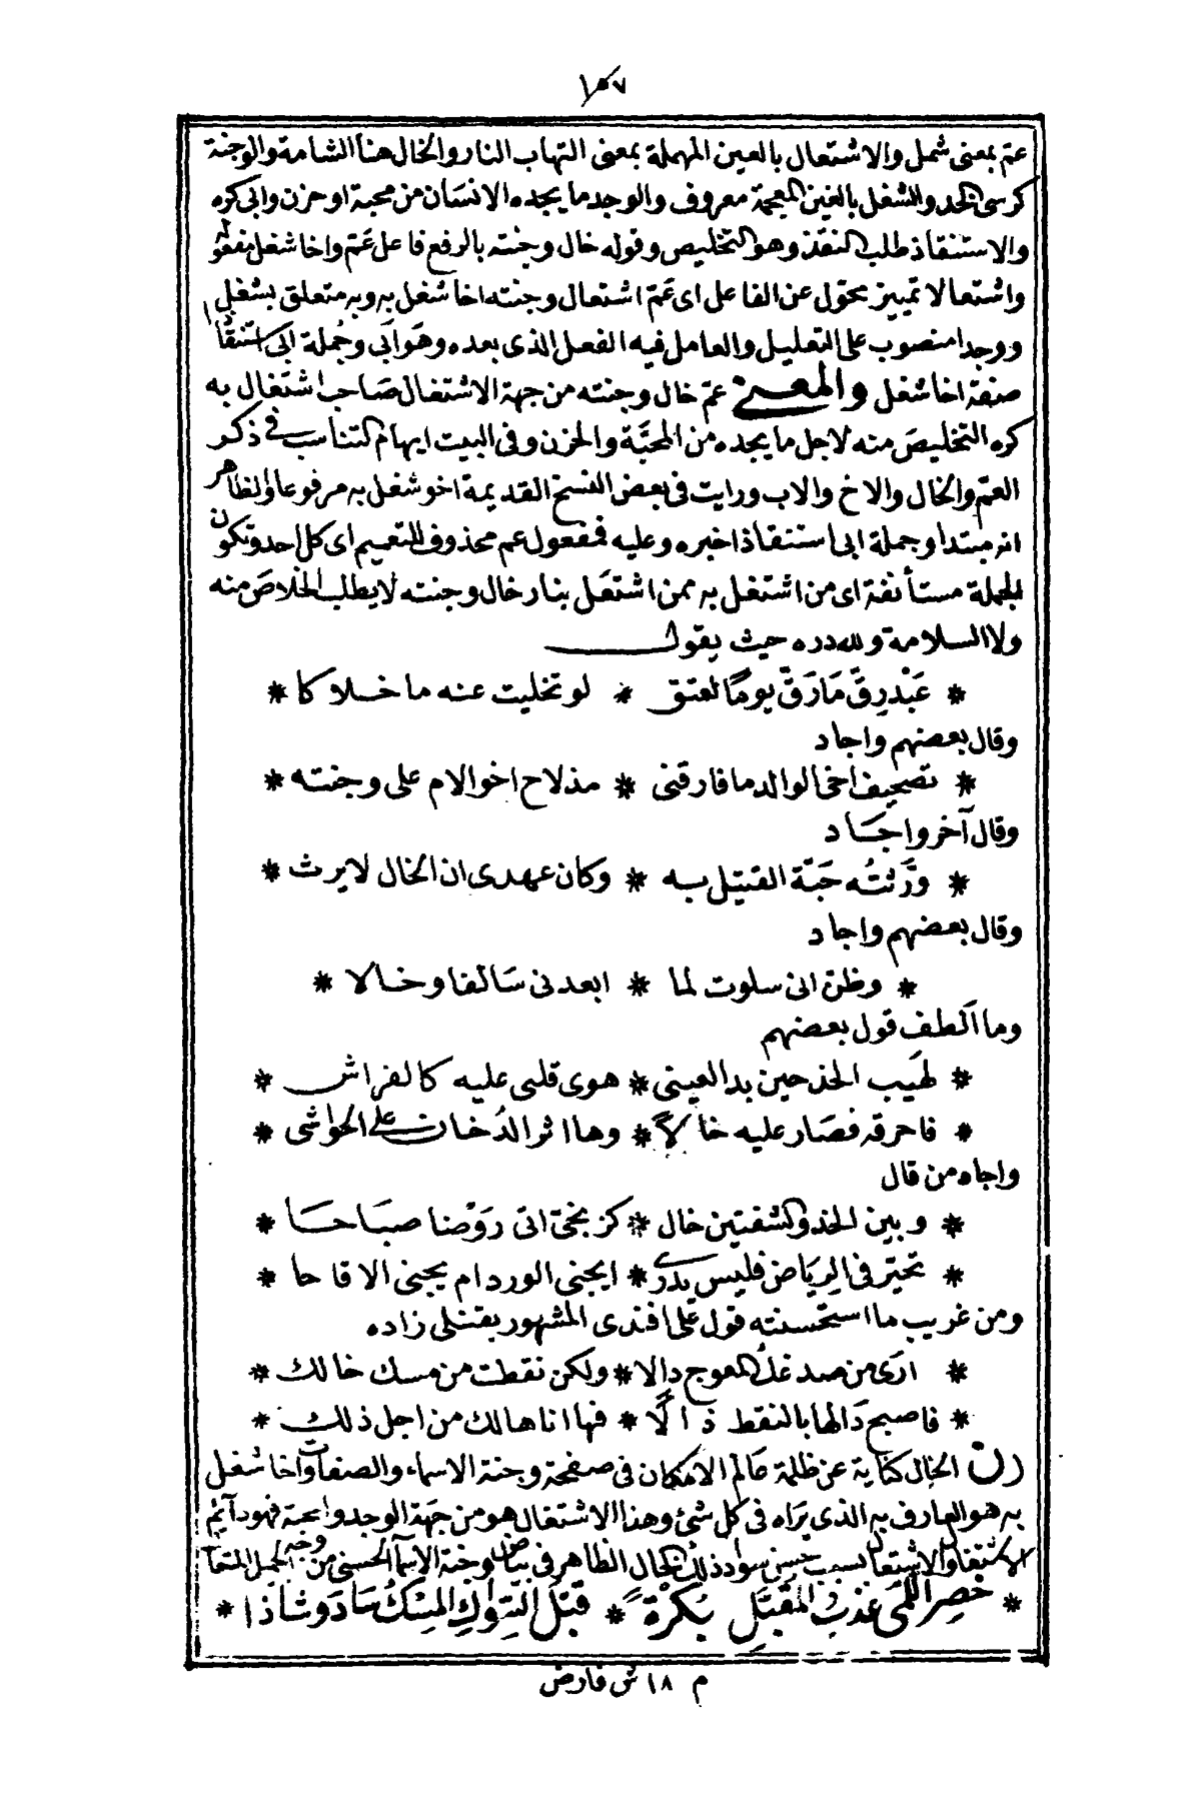 ١٥٧
عمّ بمعنى شمل والاشتعال بالعين المهملة بمعنى التهاب النار والخال هنا الشامة والوجنة
كرسى الخد والشغل بالغين المعجمة معروف والوجد ما يجده الانسان من محبة او حزن وابى كره
والاستنقاذ طلب النقذ وهو التخليص وقوله خال وجنته بالرفع فاعل عَمّ واخا شغل مفعوله
واشتعالا تمييز محوّل عن الفاعل اى عَمّ اشتعال وجنته اخا شغل به وبه متعلق بشغل
ووجدا منصوب على التعليل والعامل فيه الفعل الذى بعده وهو ابَى وجُملة ابى استنقاذا
صفة اخا شغل والمعنى عمّ خال وجنته من جهة الاشتعال صَاحب اشتغال به
كره التخليصَ منه لاجل ما يجده من المحبَّة والحزن وفى البيت ايهام التناسب فى ذكر
العمّ والخال والاخ والاب ورايت فى بعض النسخ القديمة اخو شغل به مرفوعا والظاهر
انه مبتدا وجملة ابى استنقاذا خبره وعليه فمفعول عم محذوف للتعميم اى كل احد وتكون
الجملة مستأنفة اى من اشتغل به ممن اشتعَل بنار خال وجنته لا يطلب الخلاصَ منه
ولا السلامة ولله دره حيث يقول
* عَبْدرِقَّ مَارَقَّ يومًا لعتق * لو تخليت عنه ما خلاكا *
وقال بعضهم واجاد
* تصحيف اخى الوالد ما فارقنى * مذ لاح اخو الام على وجنته *
وقال آخر واجَاد
* ورَّثتُه حَبّة القتيل به * وكان عهدى ان الخال لا يرث *
وقال بعضهم واجاد
* وظن انى سلوت لما * ابعدنى سَالفا وخالا *
وما اَلطف قول بعضهم
* لهَيب الخد حين بدا لعينى * هوى قلبى عليه كالفراش *
* فاحرقه فصَار عليه خالاً * وها اثر الدُخان على الحواشى *
واجاد من قال
* وبين الخد والشفتين خال * كزنجىّ اتى روْضا صبَاحَا *
* تحيّر فى الرِيَاض فليس يدرى * ايجنى الورد ام يجنى الاقاحا *
ومن غريب ما استحسنته قول على افندى المشهور بقنلى زاده
* ارَى من صدغك المعوج دالا * ولكن نقطت من مسك خالك *
* فاصبح دَالها بالنقط ذالًا * فها انا هالك من اجل ذلك *
(ن) الخال كناية عن ظلمة عَالم الامكان فى صفحة وجنة الاسماء والصفات واخا شغل
به هو العارف به الذى يرَاه فى كل شئ وهذا الاشتغال هو من جهَة الوجد والمحبة فهو دآئم
الاشتغال والاشتعال بسبب حسن سواد ذلك الخال الظاهر فى بياض وجنة الاسمآ الحسنى من وجه الجميل المتعال
* خَصِر اللَّمَى عَذب المقبَّلِ بُكرَةً * قبْل السِّواكِ المِسْكَ سَادَ وشَاذَا *
م ١٨ ش فارض